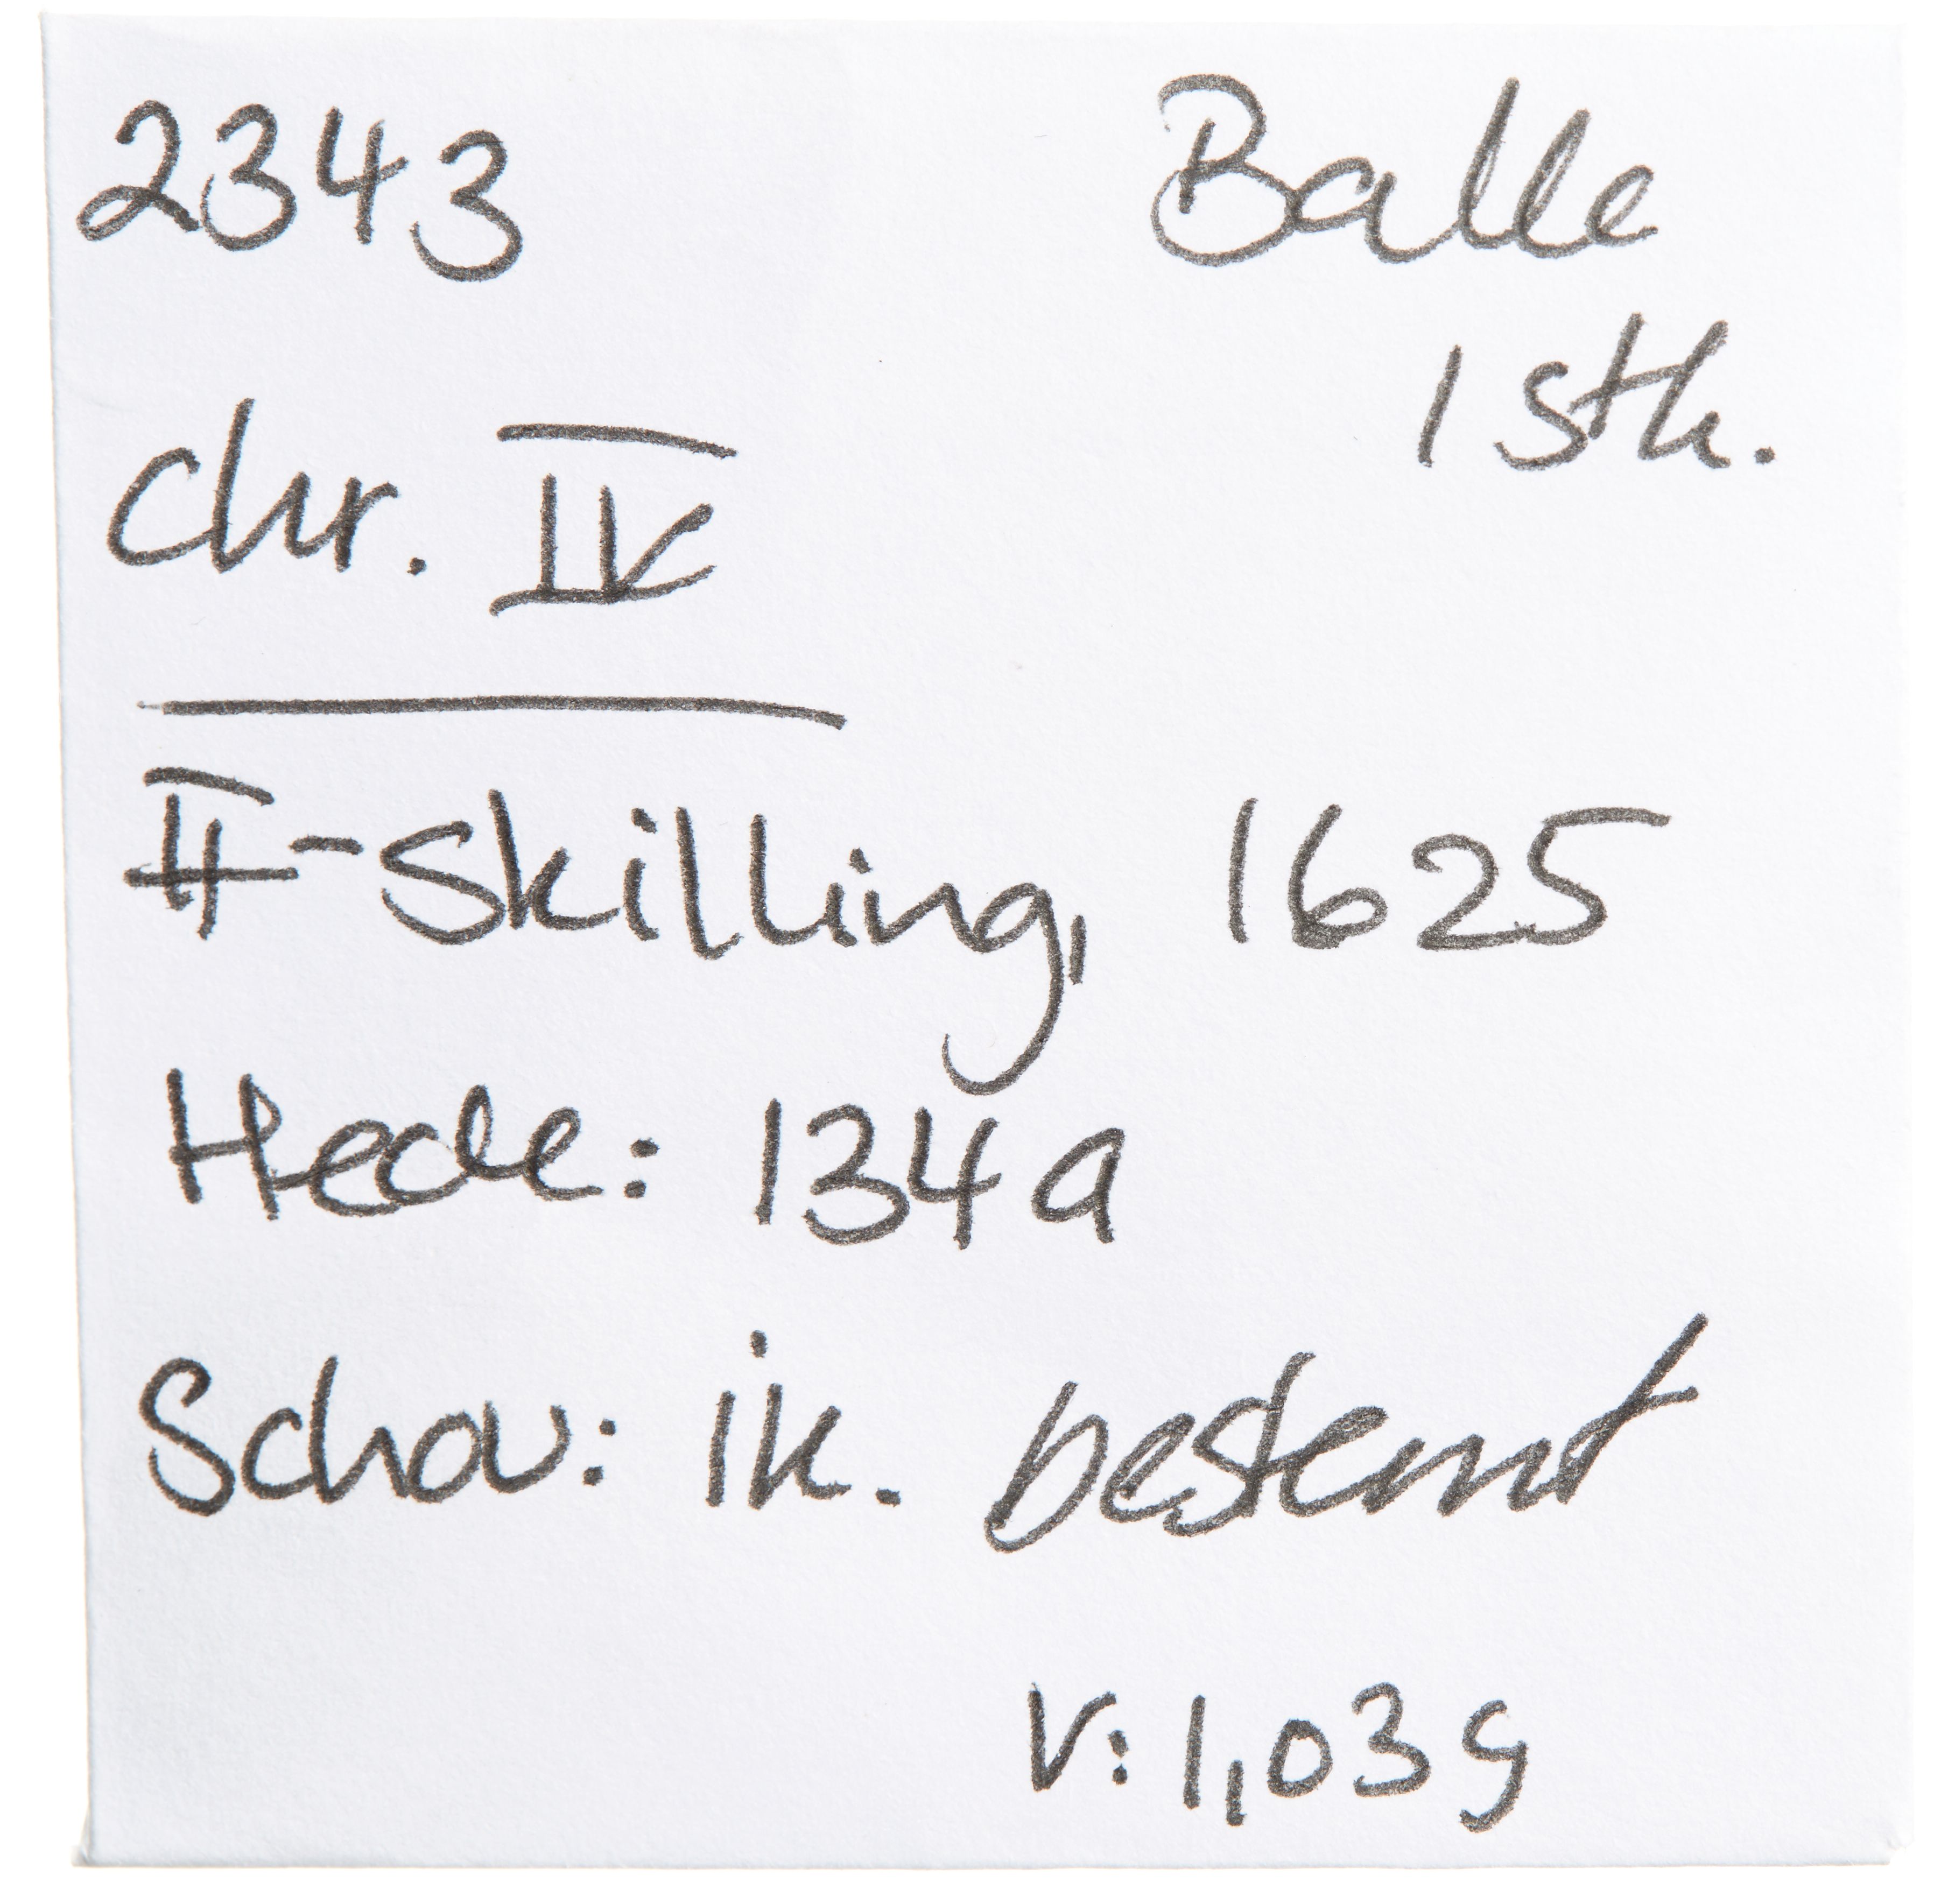 2343 Balle
1 stk.
Chr. IV
II-Skilling, 1625
Hede: 134a
Schou: ik. bestemt
V: 1,03g